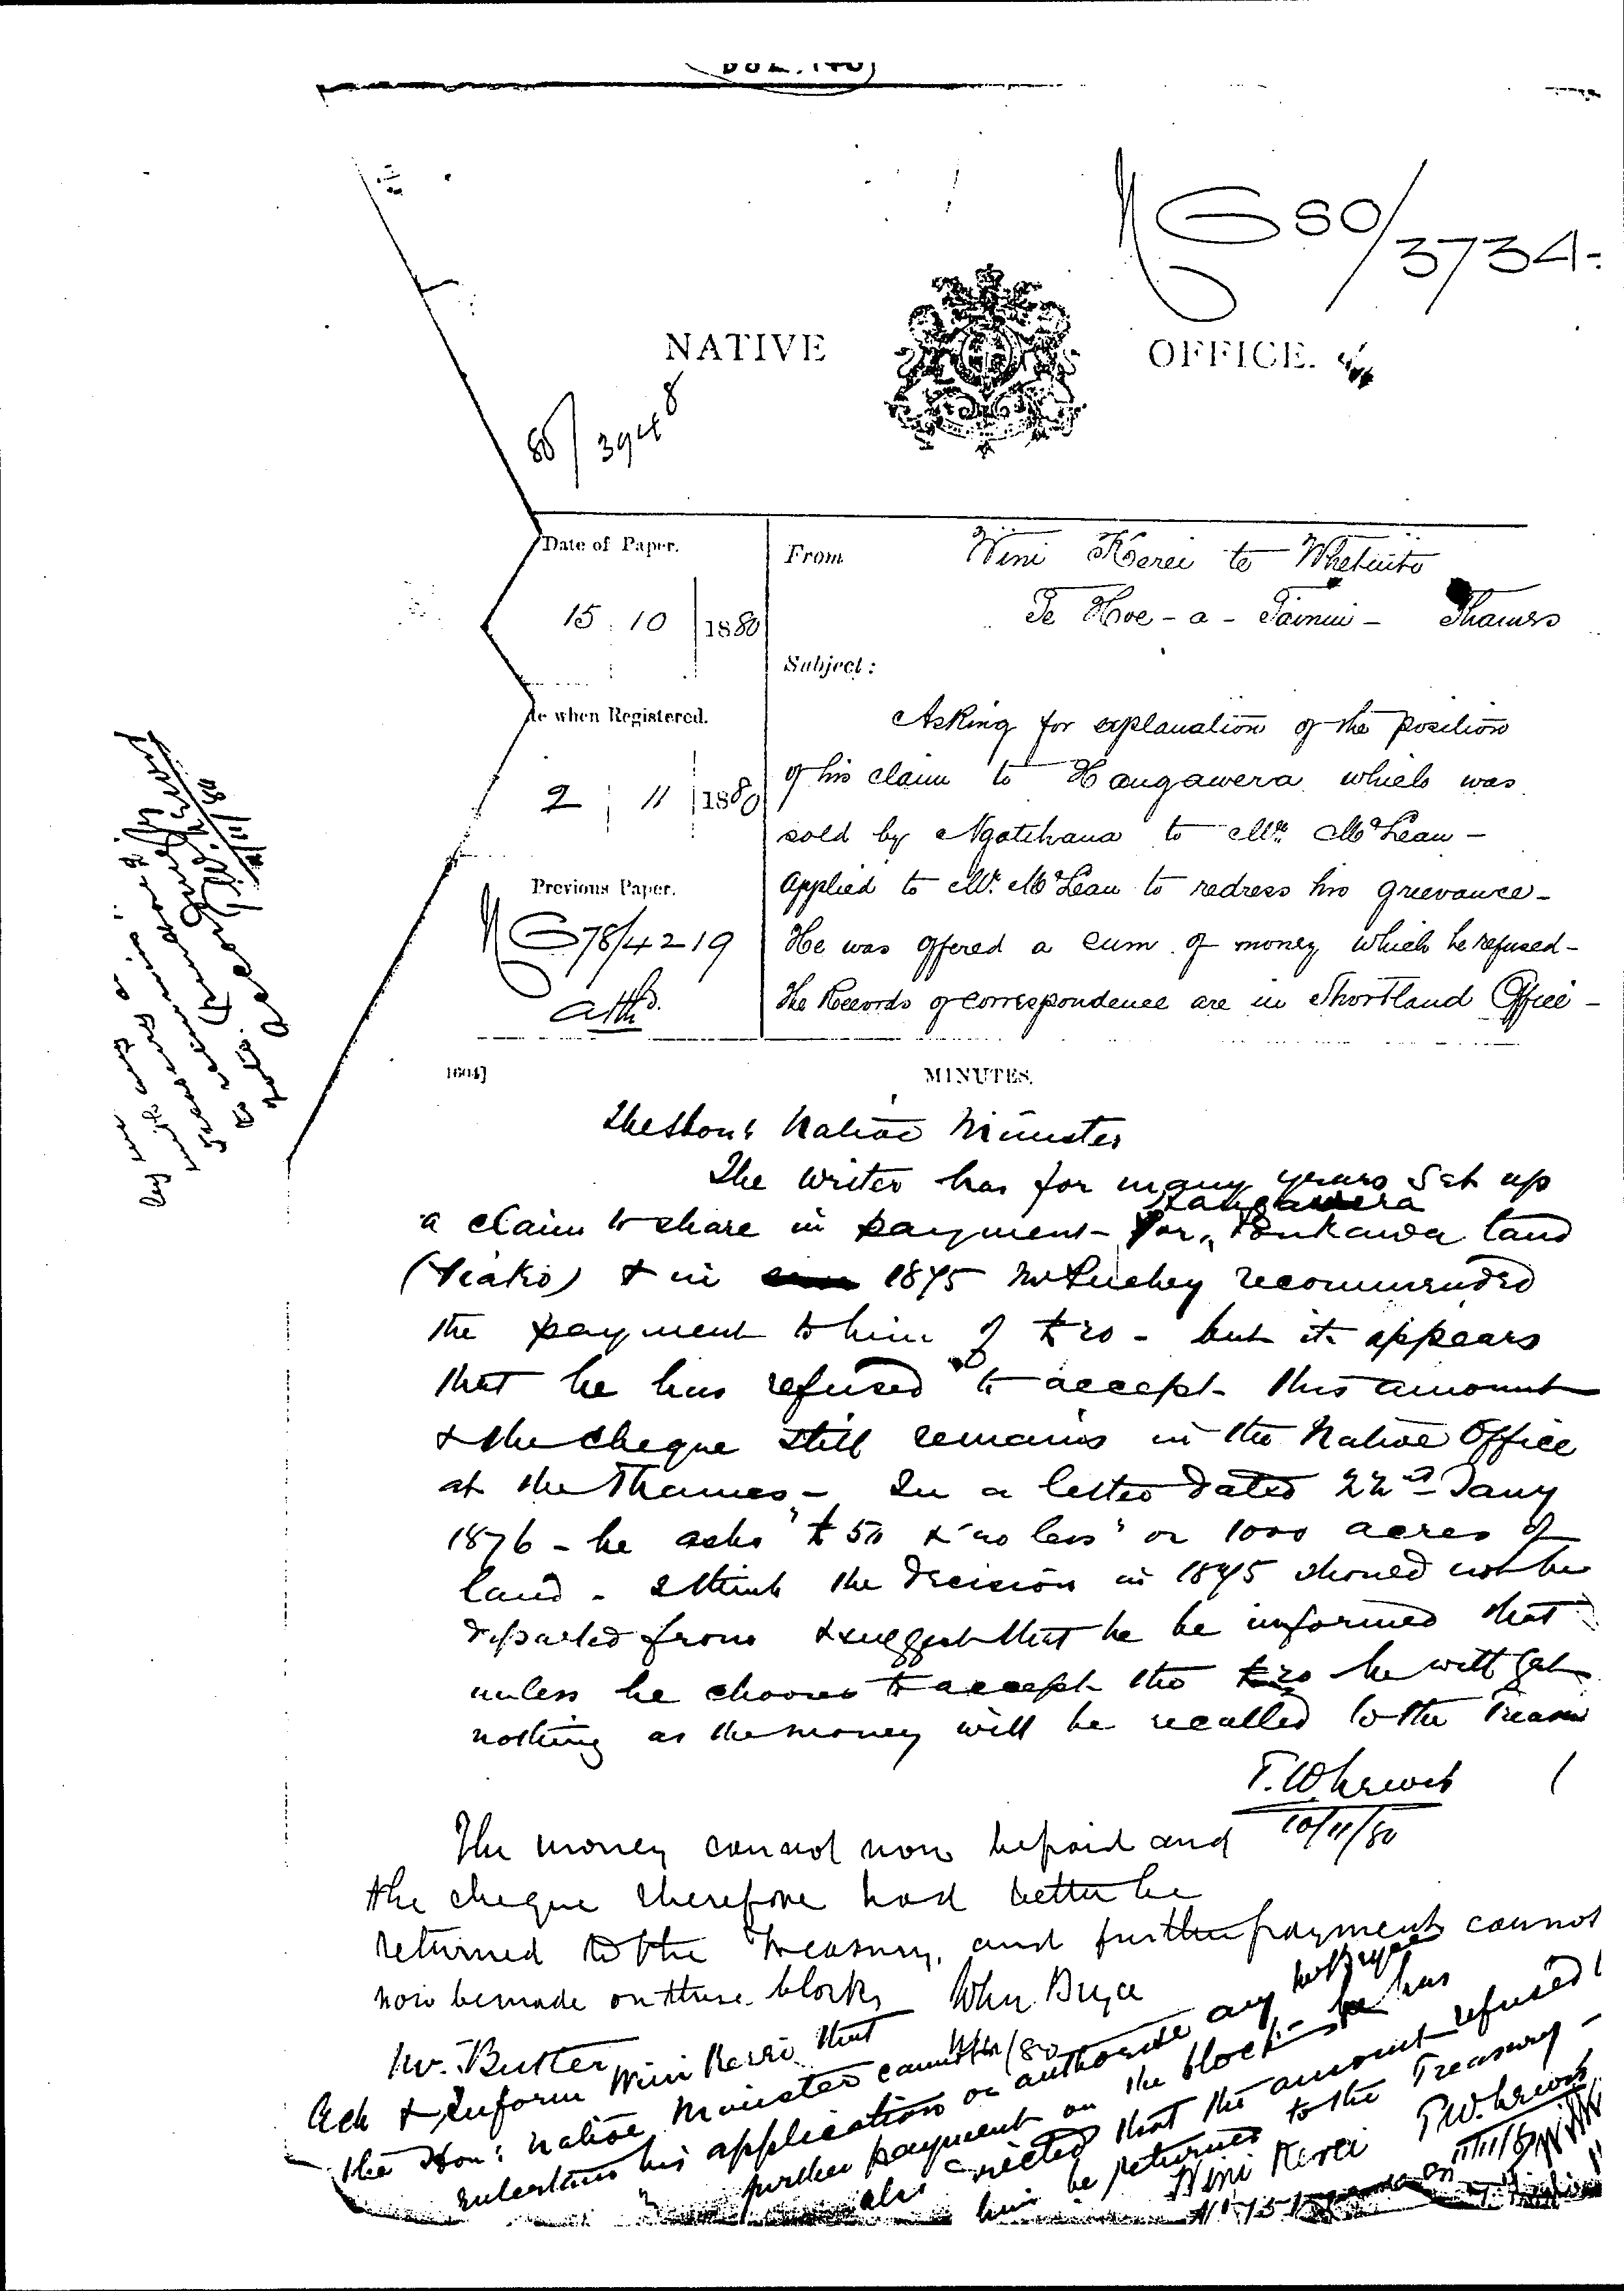 NG 80/3734
NATIVE OFFICE.
80/3948
Date of Paper.
15 . 10 1880
From Wini Kerei te Whetuito
Te Hoe-a-Tainui - Thames
Subject:
te when Registered.
2 11 1880
Asking for explanation of the position
of his claim to Hangawera which was
sold by Ngatihaua to Mr. McLean -
Applied to Mr. McLean to redress his grievance -
He was offered a sum of money which he refused -
The Records of correspondence are in Shortland Office -
Previous Paper.
NG 78/4219
attd.
1604]
MINUTES.
The Hon: Native Minister
The writer has for many years set up
Hangawera
a claim to share in payment for land
(Piako) & in 1875 Mr Puckey recommended
the payment to him of £20 - but it appears
that he has refused to accept this amount
& the cheque still remains in the Native Office
at the Thames - In a letter dated 22nd Jany
1876 - he asks £50 & "no less" or 1000 acres of
land - I think the decision in 1875 should not be
departed from & suggest that he be informed that
unless he chooses to accept the £20 he will get
nothing as the money will be recalled to the
T.W. Lewis
10/11/80
The money cannot now be paid and
the cheque therefore had better be
returned to the Treasury, and further payments cannot
now be made on these blocks John Bryce
Mr. Butler
Ack & Inform Wini Kerei that
the Hon: Native Minister cannot
entertain his application or authorise any
further payment on the block - Mr Bryce has
also directed that the amount refused
him be returned to the Treasury -
T.W. Lewis
11/11/80
Wini Kerei